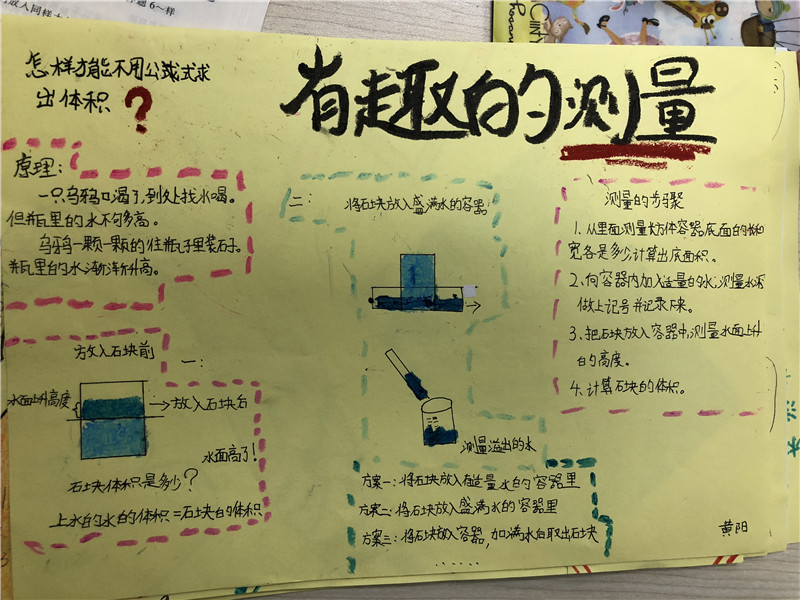 怎样才能不用公式求
出体积？
有趣的测量
原理：
一只乌鸦口渴了,到处找水喝。
但瓶里的水不够多高。
乌鸦一颗一颗的往瓶子里装石子。
瓶里的水渐渐升高。
放入石块前
一：
水面上升高度
放入石块后
水面高了!
石块体积是多少?
上水的水的体积=石块的体积
二：
将石块放入盛满水的容器
测量溢出的水
方案一：将石块放入有适量水的容器里
方案二：将石块放入盛满水的容器里
方案三：将石块放入容器,加满水后取出石块
……
测量的步骤
1.从里面测量长方体容器底面的长和
宽各是多少,计算出底面积。
2、向容器内加入适量的水,测量水深
做上记号并记录下来。
3.把石块放入容器中,测量水面上升
的高度。
4.计算石块的体积。
黄阳